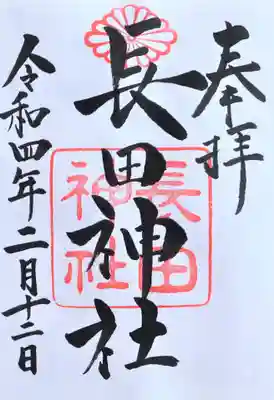 奉拝
長田神社
長田神社
令和四年二月十二日